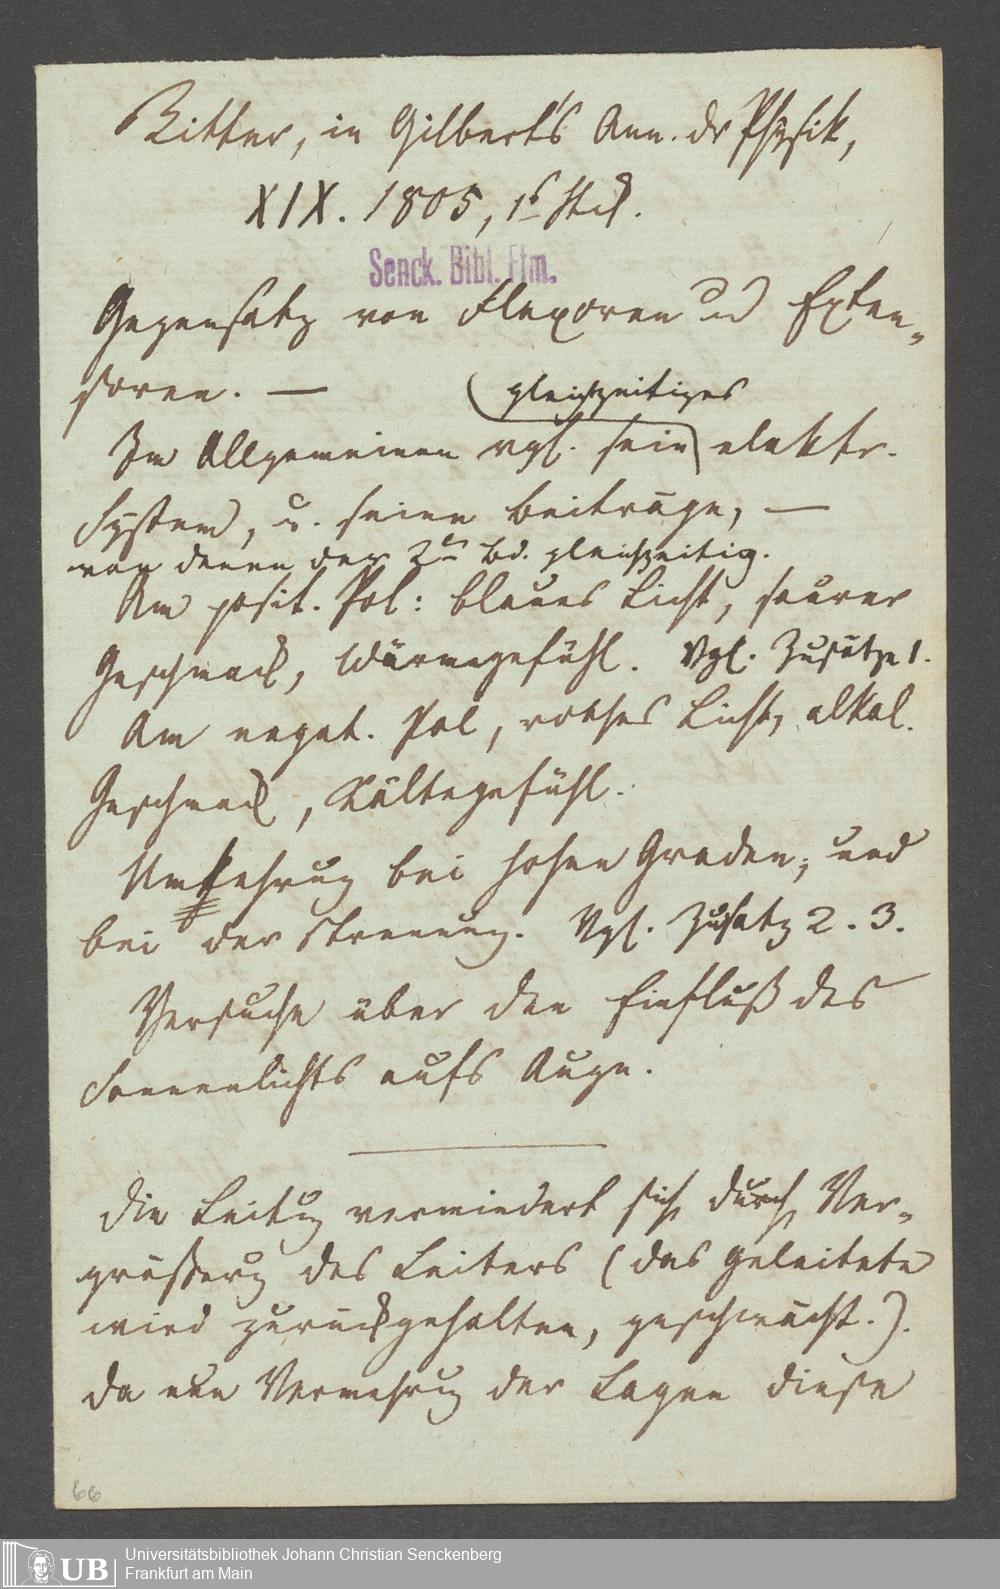 Ritter, in Gilbert's Ann. dr Physik,
XIX. 1805, 1s Stck.
Senck. Bibl. Ffm.
Gegensatz von Flexoren und Exten-
soren. —
gleichzeitiges
Im Allgemeinen vgl. sein elektr.
System, u. seine Beiträge, —
von denen der 2te Bd. gleichzeitig.
Am posit. Pol: blaues Licht, saurer
Geschmack, Wärmegefühl. Vgl. Zusätze 1.
Am negat. Pol, rothes Licht, alkal.
Geschmack, Kältegefühl.
Umkehrung bei hohen Graden, und
bei der Trennung. Vgl. Zusatz 2. 3.
Versuche über den Einfluß des
Sonnenlichts aufs Auge.
Die Leitung vermindert sich durch Ver-
größerung des Leiters (das Geleitete
wird zurückgehalten, geschwächt.).
Da nun Vermehrung der Lagen diese
66
UB
Universitätsbibliothek Johann Christian Senckenberg
Frankfurt am Main